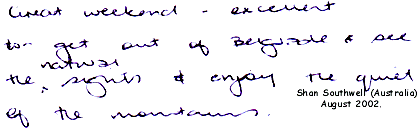 Great weekend - excellent
to get out of Belgrade & see
the natural sights & enjoy the quiet
of the mountains.
Shan Southwell (Australia)
August 2002.